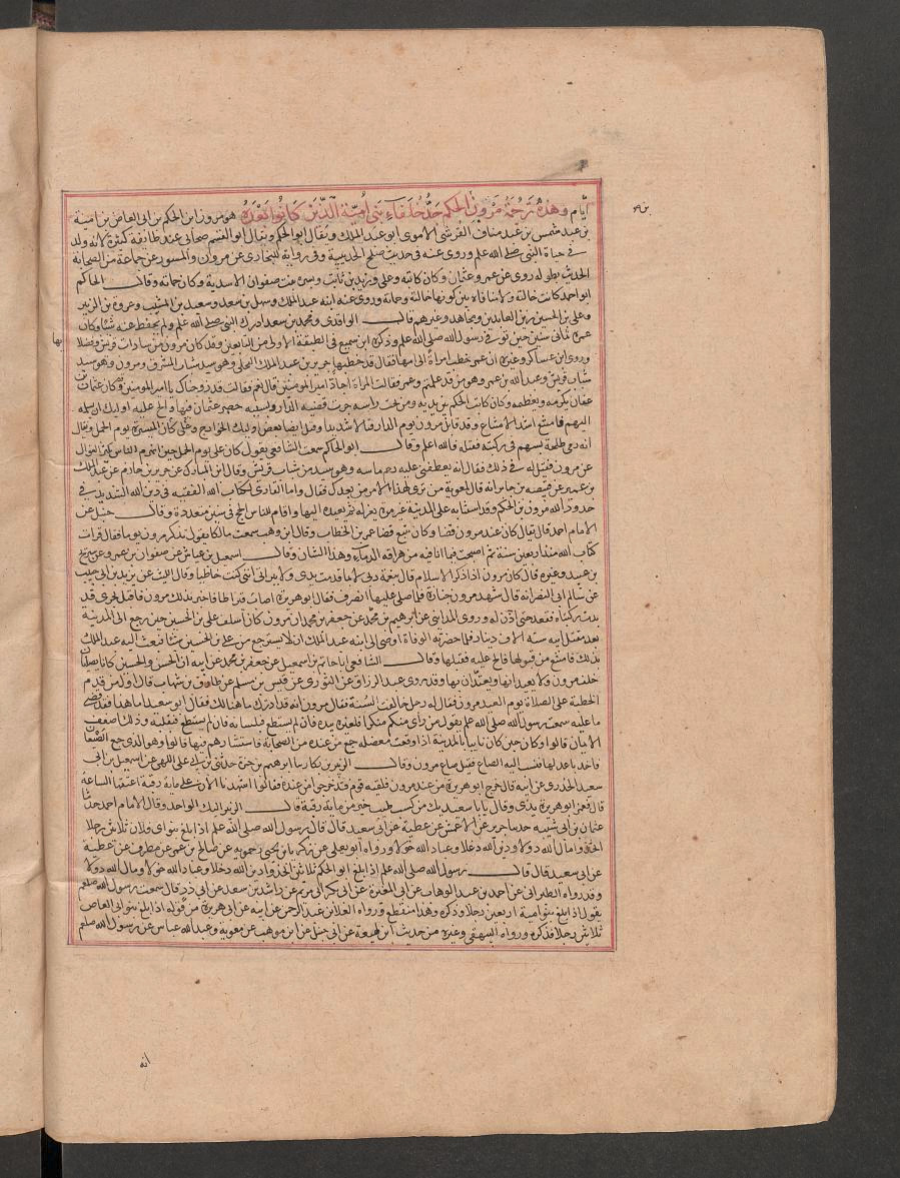 أيام وهذه ترجمة مرون بن الحكم جد خلفاء بني أمية الذين كانوا بعده هو مرون ابن الحكم بن ابى العاص بن امية
بن عبد شمس بن عبد مناف القرشى الاموى ابو عبد الملك ويقال ابو الحكم ويقال ابو القسم صحابى عند طائفة كثيرة لانه ولد
فى حياة النبى صلى الله علم وروى عنه فى حديث صلح الحديبية وفى رواية للبخارى عن مروان والمسور عن جماعة من الصحابة
الحديث بطوله روى عن عمر وعثمان وكان كاتبه وعلى وزيد بن ثابت وبسرة بنت صفوان الاسدية وكان حماته وقال الحاكم
ابو احمد كانت خالته ولا منافاة بين كونها خالته وحماته وروى عنه ابنه عبد الملك وسهل بن سعد وسعيد بن المسيب وعروة بن الزبير
وعلى بن الحسين زين العابدين ومجاهد وغيرهم قال الواقدى ومحمد بن سعد ادرك النبى صلى الله علم ولم يحفظ عنه شيئا وكان
عمره ثمانى سنين حين توفى رسول الله صلى الله علم وذكره ابن سميع فى الطبقة الاولى من التابعين وقد كان مرون من سادات قريش وفضلا
بها
وروى ابن عساكر وغيره ان عمر خطب امراة الى امها فقال قد خطبها جرير بن عبد الملك البجلى وهو سيد شباب المشرق ومرون وهو سيد
شباب قريش وعبد الله بن عمر وهو من قد علمتم وعمر فقالت المراة اجاد امير المومنين قال نعم فقالت قد زوجناك يا امير المومنين وكان عثمان بن
عفان يكرمه ويعظمه وكان كاتب الحكم بين يديه ومن تحت راسه جرت قضية الدار وبسببه حصر عثمان فيها والح عليه اوليك ان يسلمه
اليهم فامتنع اشد الامتناع وقد قاتل مرون يوم الدار قتالا شديدا وقتل ايضا بعض اوليك الخوارج وعلى كان الميسرة يوم الجمل ويقال
انه رمى طلحة بسهم فى ركبته فقتله فالله اعلم وقال ابو الحكم سمعت الشافعى يقول كان على يوم الجمل حين انهزم الناس يكثر السوال
عن مرون فقيل له فى ذلك فقال انه يعطفنى عليه رحم ماسه وهو سيد من شباب قريش وقال ابن المبارك عن جرير بن حازم عن عبد الملك
بن عمير عن قبيصه بن جابر انه قال لمعوية من ترى لهذا الامر من بعدك فقال واما القارى لكتاب الله الفقيه فى دين الله الشديد فى
حدود الله مرون بن الحكم وقد استنابه على المدينة غير مرة يعزله ثم يعيده اليها واقام للناس الحج فى سنين متعددة وقال حنبل عن
الامام احمد قال يقال كان عند مرون قضا وكان يتبع قضا عمر بن الخطاب وقال ابن وهب سمعت مالكا يقول وذكر مرون يوما فقال قرات
كتاب الله منذ اربعين سنة ثم اصبحت فيما انا فيه من هراقه الدماء وهذا الشان وقال اسمعيل بن عياش عن صفوان بن عمرو عن شريح
بن عبيد وغيره قال كان مرون اذا ذكر الاسلام قال
عن سالم ابى النضر انه قال شهد مرون جنازة فلما صلى عليها انصرف فقال ابو هريرة اصاب قيراطا فاخبر بذلك مرون فاقبل يجرى قد
بدت ركبتاه فقعد حتى اذن له وروى المداينى عن ابرهيم بن محمد عن جعفر بن محمد ان مرون كان اسلف على بن الحسين حين رجع الى المدينة
بعد مقتل ابيه سته الاف دينار فلما حضرته الوفاة اوصى الى ابنه عبد الملك ان لا يسترجع من على بن الحسين شيا فبعث اليه عبد الملك
بذلك فامتنع من قبولها فالح عليه فقبلها وقال الشافعى انا حاتم بن اسمعيل عن جعفر بن محمد عن ابيه ان الحسن والحسين كانا يصليان
خلف مرون ولا يعيدانها ويعتدان بها وقد روى عبد الرزاق عن الثورى عن قيس بن مسلم عن طارق بن شهاب قال اول من قدم
الخطبة على الصلاة يوم العيد مرون فقال له رجل خالفت السنة فقال مرون انه قد ترك ما هنالك فقال ابو سعيد اما هذا فقد قضى
ما عليه سمعت رسول الله صلى الله علم يقول من راى منكم منكرا فليغيره بيده فان لم يستطع فبلسانه فان لم يستطع فبقلبه وذلك اضعف
الايمان قالوا وكان حين كان نايبا بالمدينة اذا وقعت معضله جمع من عنده من الصحابة فاستشارهم فيها قالوا وهو الذى جمع الصيعان
فاخذ باعدلها فنسب اليه الصاع فقيل صاع مرون وقال الزبير بن بكار ثنا ابرهيم بن حمزة حدثنى بن ابى على اللهبى عن اسمعيل بن ابى
سعيد الخدرى عن ابيه قال خرج ابو هريرة من عند مرون فلقيه قوم قد خرجوا من عنده فقالوا اشهدنا الان على ماية رقبة اعتقها الساعة
قال فغمز ابو هريرة يدى وقال يابا سعيد بك من كسب طيب خير من ماية رقبة قال الزبير البك الواحد وقال الامام احمد حدثنا
عثمان بن ابى شيبه حدثنا جرير عن الاعمش عن عطية عن ابى سعيد قال قال رسول الله صلى الله علم اذا بلغ بنو اى فلان ثلاثين رجلا
اتخذوا مال الله دولا ودين الله دغلا وعباد الله خولا ورواه ابو يعلى عن زكريا بن يحيى زحمويه عن صالح بن عمر عن مطرف عن عطية
عن ابى سعيد قال قال رسول الله صلى الله علم اذا بلغ ابو الحكم ثلاثين اتخذوا دين الله دخلا وعباد الله خولا ومال الله دولا
وقد رواه الطبرانى عن احمد بن عبد الوهاب عن ابى المغيرة عن ابى بكر ابى مريم عن راشد بن سعد عن ابى ذر قال سمعت رسول الله صلعم
يقول اذا بلغ بنو امية اربعين رجلا وذكره وهذا منقطع ورواه العلا بن عبد الرحمن عن ابيه عن ابى هريرة من قوله اذا بلغ بنو ابى العاص
ثلاثين رجلا فذكره ورواه البيهقى وغيره من حديث ابن لهيعة عن ابى قبيل عن ابن موهب عن معوية وعبد الله عباس عن رسول الله صلعم
انه